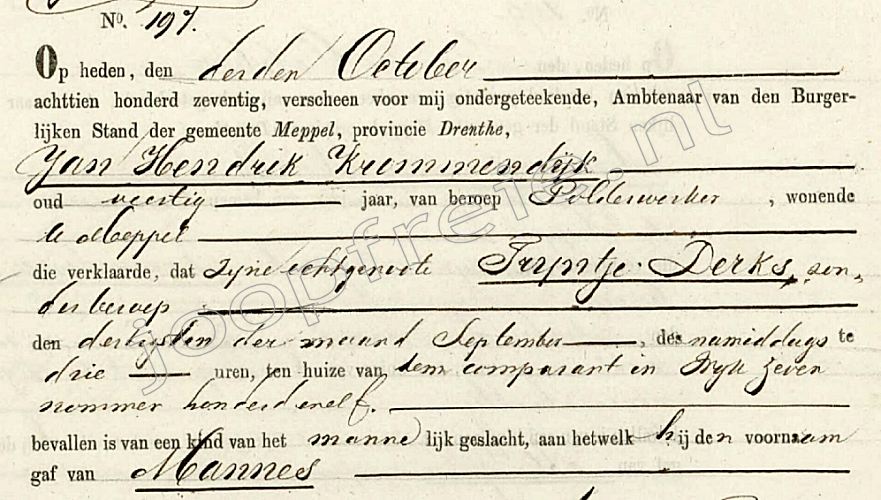 No. 197.
Op heden, den derden October
achttien honderd zeventig, verscheen voor mij ondergeteekende, Ambtenaar van den Burger-
lijken Stand der gemeente Meppel, provincie Drenthe,
Jan Hendrik Krommendijk
oud veertig jaar, van beroep Polderwerker, wonende
te Meppel
die verklaarde, dat Zijne echtgenoote Trijntje Derks, zon„
der beroep
den dertigsten der maand September, des namiddags te
drie uren, ten huize van hem comparant in Wyk Zeven
nommer honderd en elf.
bevallen is van een kind van het mannelijk geslacht, aan hetwelk hij den voornaam
gaf van Mannes
joopfreie.nl